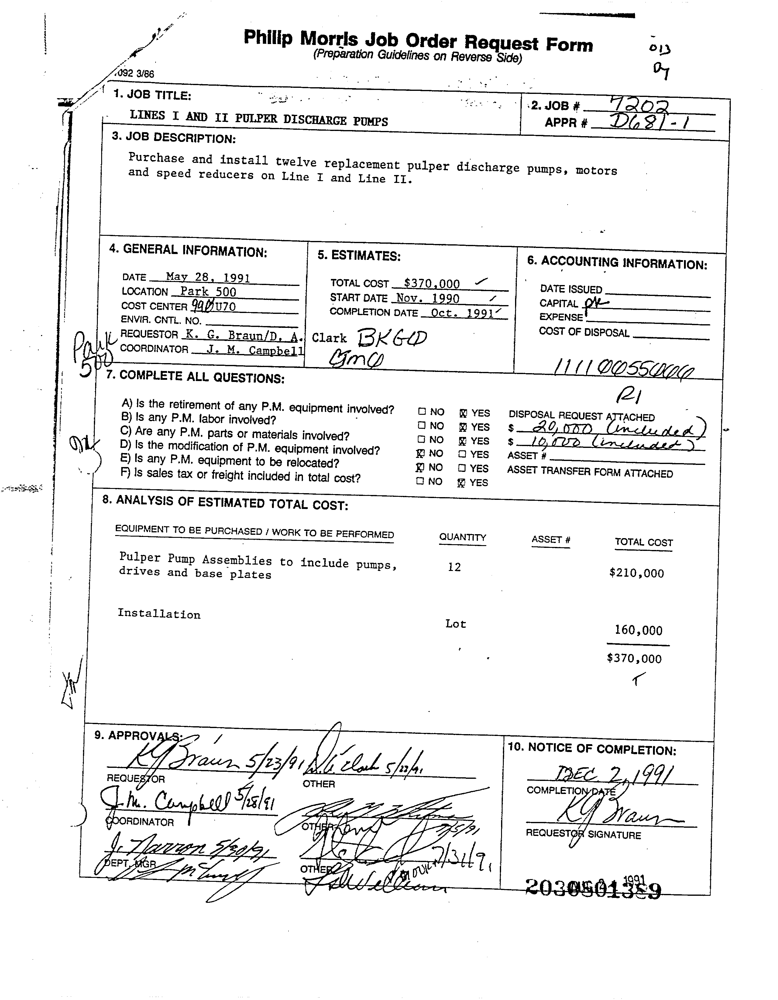 Philip Morris Job Order Request Form
(Preparation Guidelines on Reverse Side)
1092 3/86
1. JOB TITLE:
LINES I AND II PULPER DISCHARGE PUMPS
2. JOB # 7202
APPR # D681-1
3. JOB DESCRIPTION:
Purchase and install twelve replacement pulper discharge pumps, motors
and speed reducers on Line I and Line II.
4. GENERAL INFORMATION:
DATE May 28, 1991
LOCATION Park 500
COST CENTER U70
ENVIR. CNTL. NO.
REQUESTOR K. G. Braun/D. A. Clark
COORDINATOR J. M. Campbell
Park
500
5. ESTIMATES:
TOTAL COST $370,000
START DATE Nov. 1990
COMPLETION DATE Oct. 1991
6. ACCOUNTING INFORMATION:
DATE ISSUED
CAPITAL
EXPENSE
COST OF DISPOSAL
7. COMPLETE ALL QUESTIONS:
A) Is the retirement of any P.M. equipment involved? NO YES DISPOSAL REQUEST ATTACHED
B) Is any P.M. labor involved? NO YES $ 20,000 (included)
C) Are any P.M. parts or materials involved? NO YES $ 10,000 (included)
D) Is the modification of P.M. equipment involved? NO YES ASSET #
E) Is any P.M. equipment to be relocated? NO YES ASSET TRANSFER FORM ATTACHED
F) Is sales tax or freight included in total cost? NO YES
8. ANALYSIS OF ESTIMATED TOTAL COST:
EQUIPMENT TO BE PURCHASED / WORK TO BE PERFORMED QUANTITY ASSET # TOTAL COST
Pulper Pump Assemblies to include pumps, 12 $210,000
drives and base plates
Installation Lot 160,000
$370,000
9. APPROVALS:
KG Braun 5/23/91
REQUESTOR
OTHER
J.M. Campbell 5/28/91
COORDINATOR
OTHER
5/30/91
DEPT. MGR.
OTHER
7/31/91
10. NOTICE OF COMPLETION:
DEC 2, 1991
COMPLETION DATE
KG Braun
REQUESTOR SIGNATURE
1991